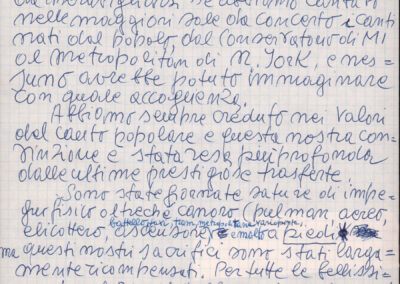 nelle maggiori sale da concerto i canti
nati dal popolo, dal Conservatorio di MI
al Metropolitan di N. York, e nes-
suno avrebbe potuto immaginare
con quale accoglienza.
Abbiamo sempre creduto nei valori
del canto popolare e questa nostra con-
vinzione è stata resa più profonda
dalle ultime prestigiose trasferte.
Sono state giornate sature di impe-
gno fisico oltreché canoro (pulman, aereo,
battello, taxi, tram, metropolitana
elicottero, ascensore e molto a piedi)
ma questi nostri sacrifici sono stati larga-
mente ricompensati. Per tutte le bellissi-